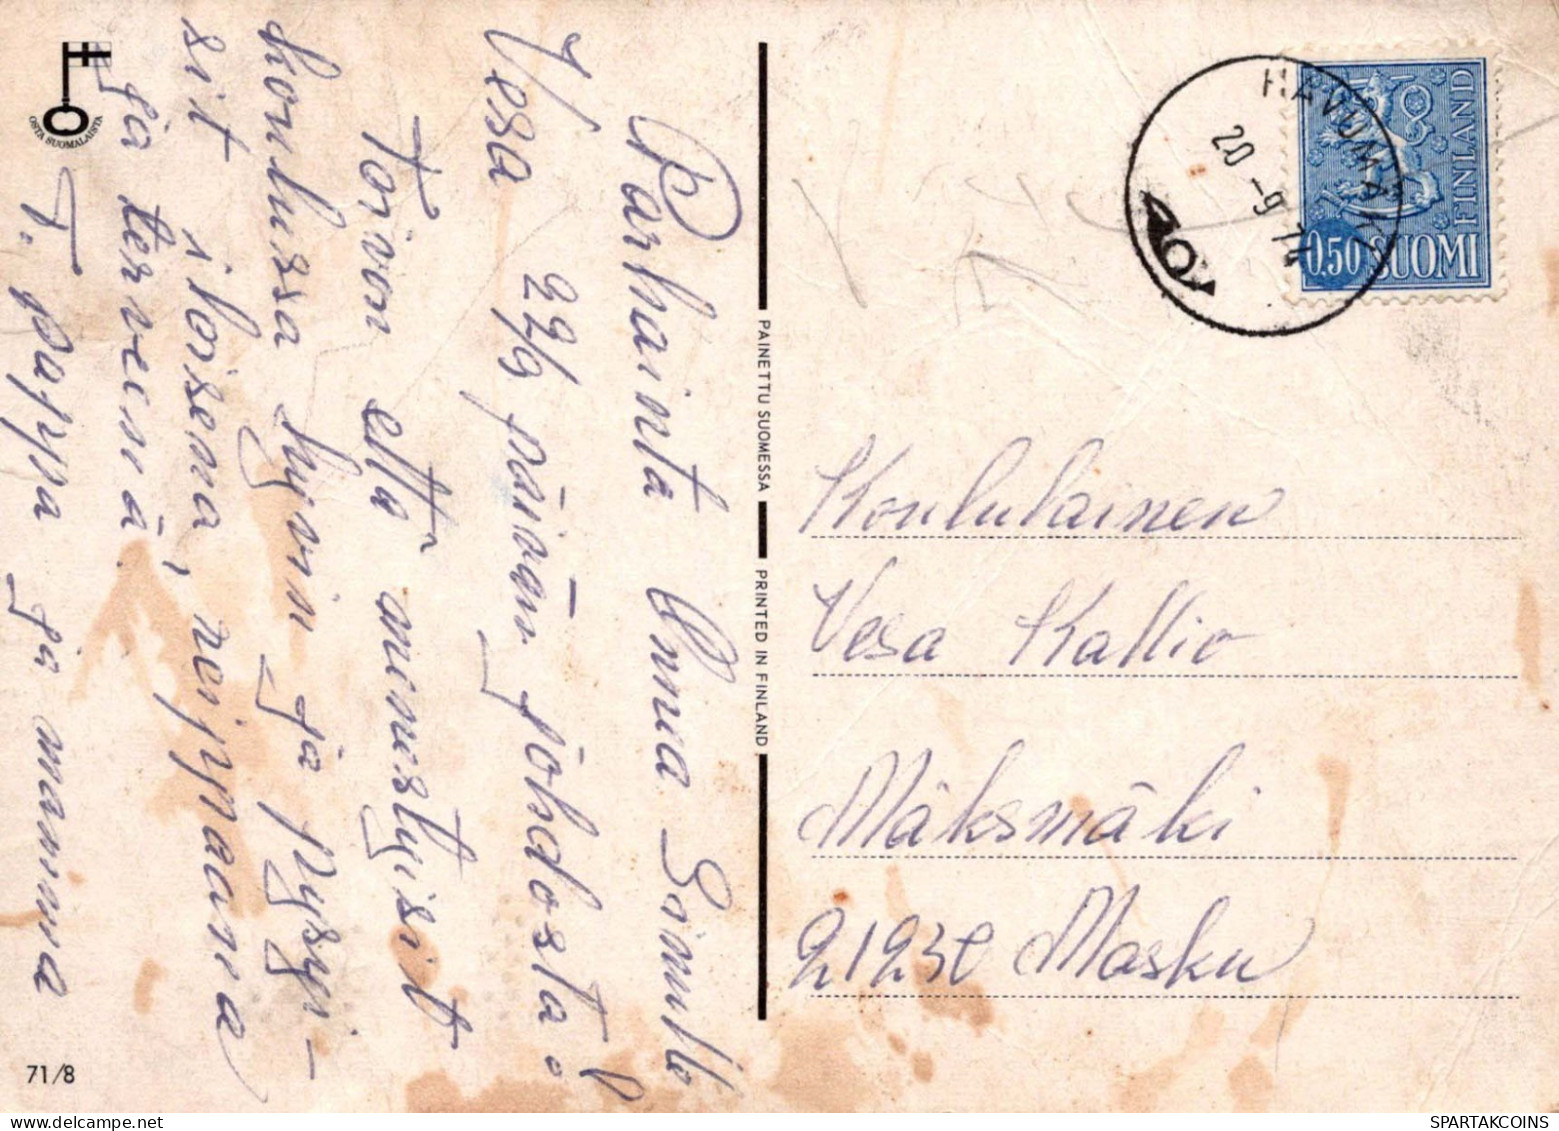 Parhainta Onnea Sinulle
Vesa 29/9 päivän johdosta!
Toivon että menestyisit
koulussa hyvin ja pysyi-
sit iloisena, reippaana
ja terveenä.
T. pappa ja mamma
OSTA SUOMALAISTA
71/8
PAINETTU SUOMESSA PRINTED IN FINLAND
HAVUMÄKI
20 -9 74
FINLAND
0.50 SUOMI
Koululainen
Vesa Kallio
Mäksmäki
21230 Masku
SPARTAKCOINS